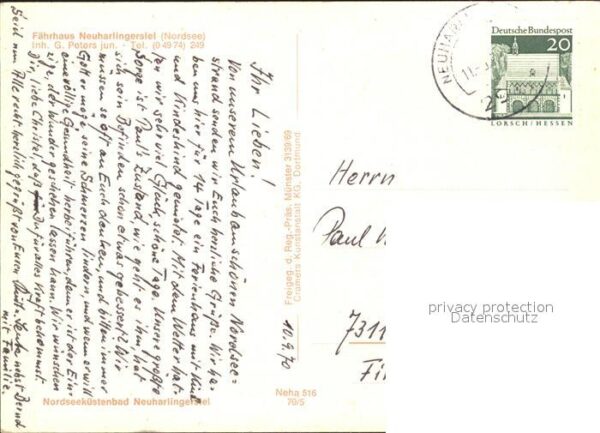 Fährhaus Neuharlingersiel (Nordsee)
Inh. G. Peters jun. · Tel. (0 49 74) 249
Ihr Lieben!
Von unserem Urlaub am schönen Nordsee=
strand senden wir Euch herzliche Grüße. Wir ha-
ben uns hier für 14 Tage ein Ferienhaus mit Kind
und Kindeskind gemietet. Mit dem Wetter hat-
ten wir sehr viel Glück, schöne Tage. Unsere größte
Sorge ist Paul's Zustand, wie geht es ihm, hat
sich sein Befinden schon etwas gebessert? Wir
müssen so oft an Euch denken, und bitten immer
Gott er möge seine Schmerzen lindern, und wenn er will
eine völlige Gesundheit herbeiführen, denn er ist der Ein-
zige, der Wunder geschehen lassen kann. Wir wünschen
Dir, liebe Christel, daß Du für alles Kraft bekommst.
Seid nun Alle recht herzlich gegrüßt von Euren
nebst Bernd
mit Familie.
Nordseeküstenbad Neuharlingersiel
10.9.70
Neha 516
70/5
Freigeg. d. Reg.-Präs. Münster 3139/69
Cramers Kunstanstalt KG, Dortmund
NEUHAR
Deutsche Bundespost
20
LORSCH/HESSEN
Herrn
Paul
7311
privacy protection
Datenschutz